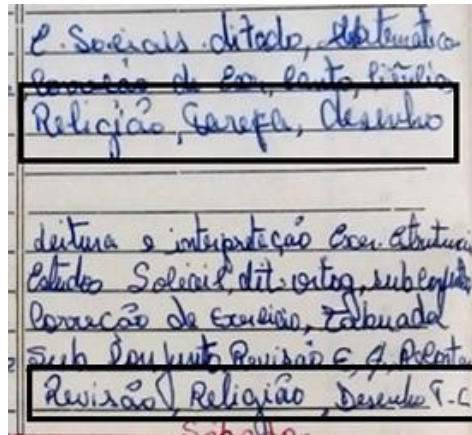 E. Sociais ditado, Matemática
Correção de Exer, Canto, Ciência
Religião, Tarefa, Desenho
Leitura e interpretação Exer. Estrutura
Estudos Sociais, dit. ortog, subconjunto
Correção de Exercício, Tabuada
Sub Conjunto, Revisão C,
Revisão, Religião, Desenho T.C
Sábado